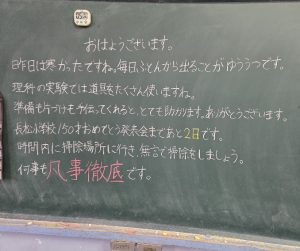 おはようございます。
昨日は寒かったですね。毎日ふとんから出ることがゆううつです。
理科の実験では道具をたくさん使いますね。
準備も片づけも手伝ってくれると、とても助かります。ありがとうございます。
長松小学校150才おめでとう発表会まであと2日です。
時間内に掃除場所に行き、無言で掃除をしましょう。
何事も凡事徹底です。